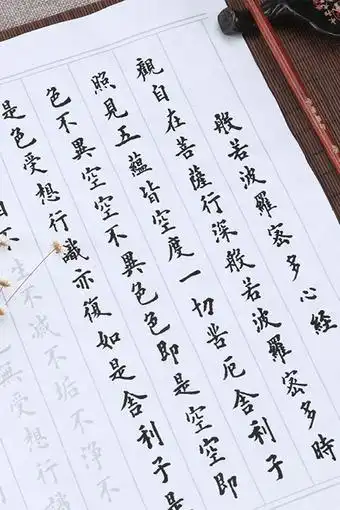 般若波羅密多心經
觀自在菩薩行深般若波羅密多時
照見五蘊皆空度一切苦厄舍利子
色不異空空不異色色即是空空即
是色受想行識亦復如是舍利子是
不生不滅不垢不淨不
無受想行識